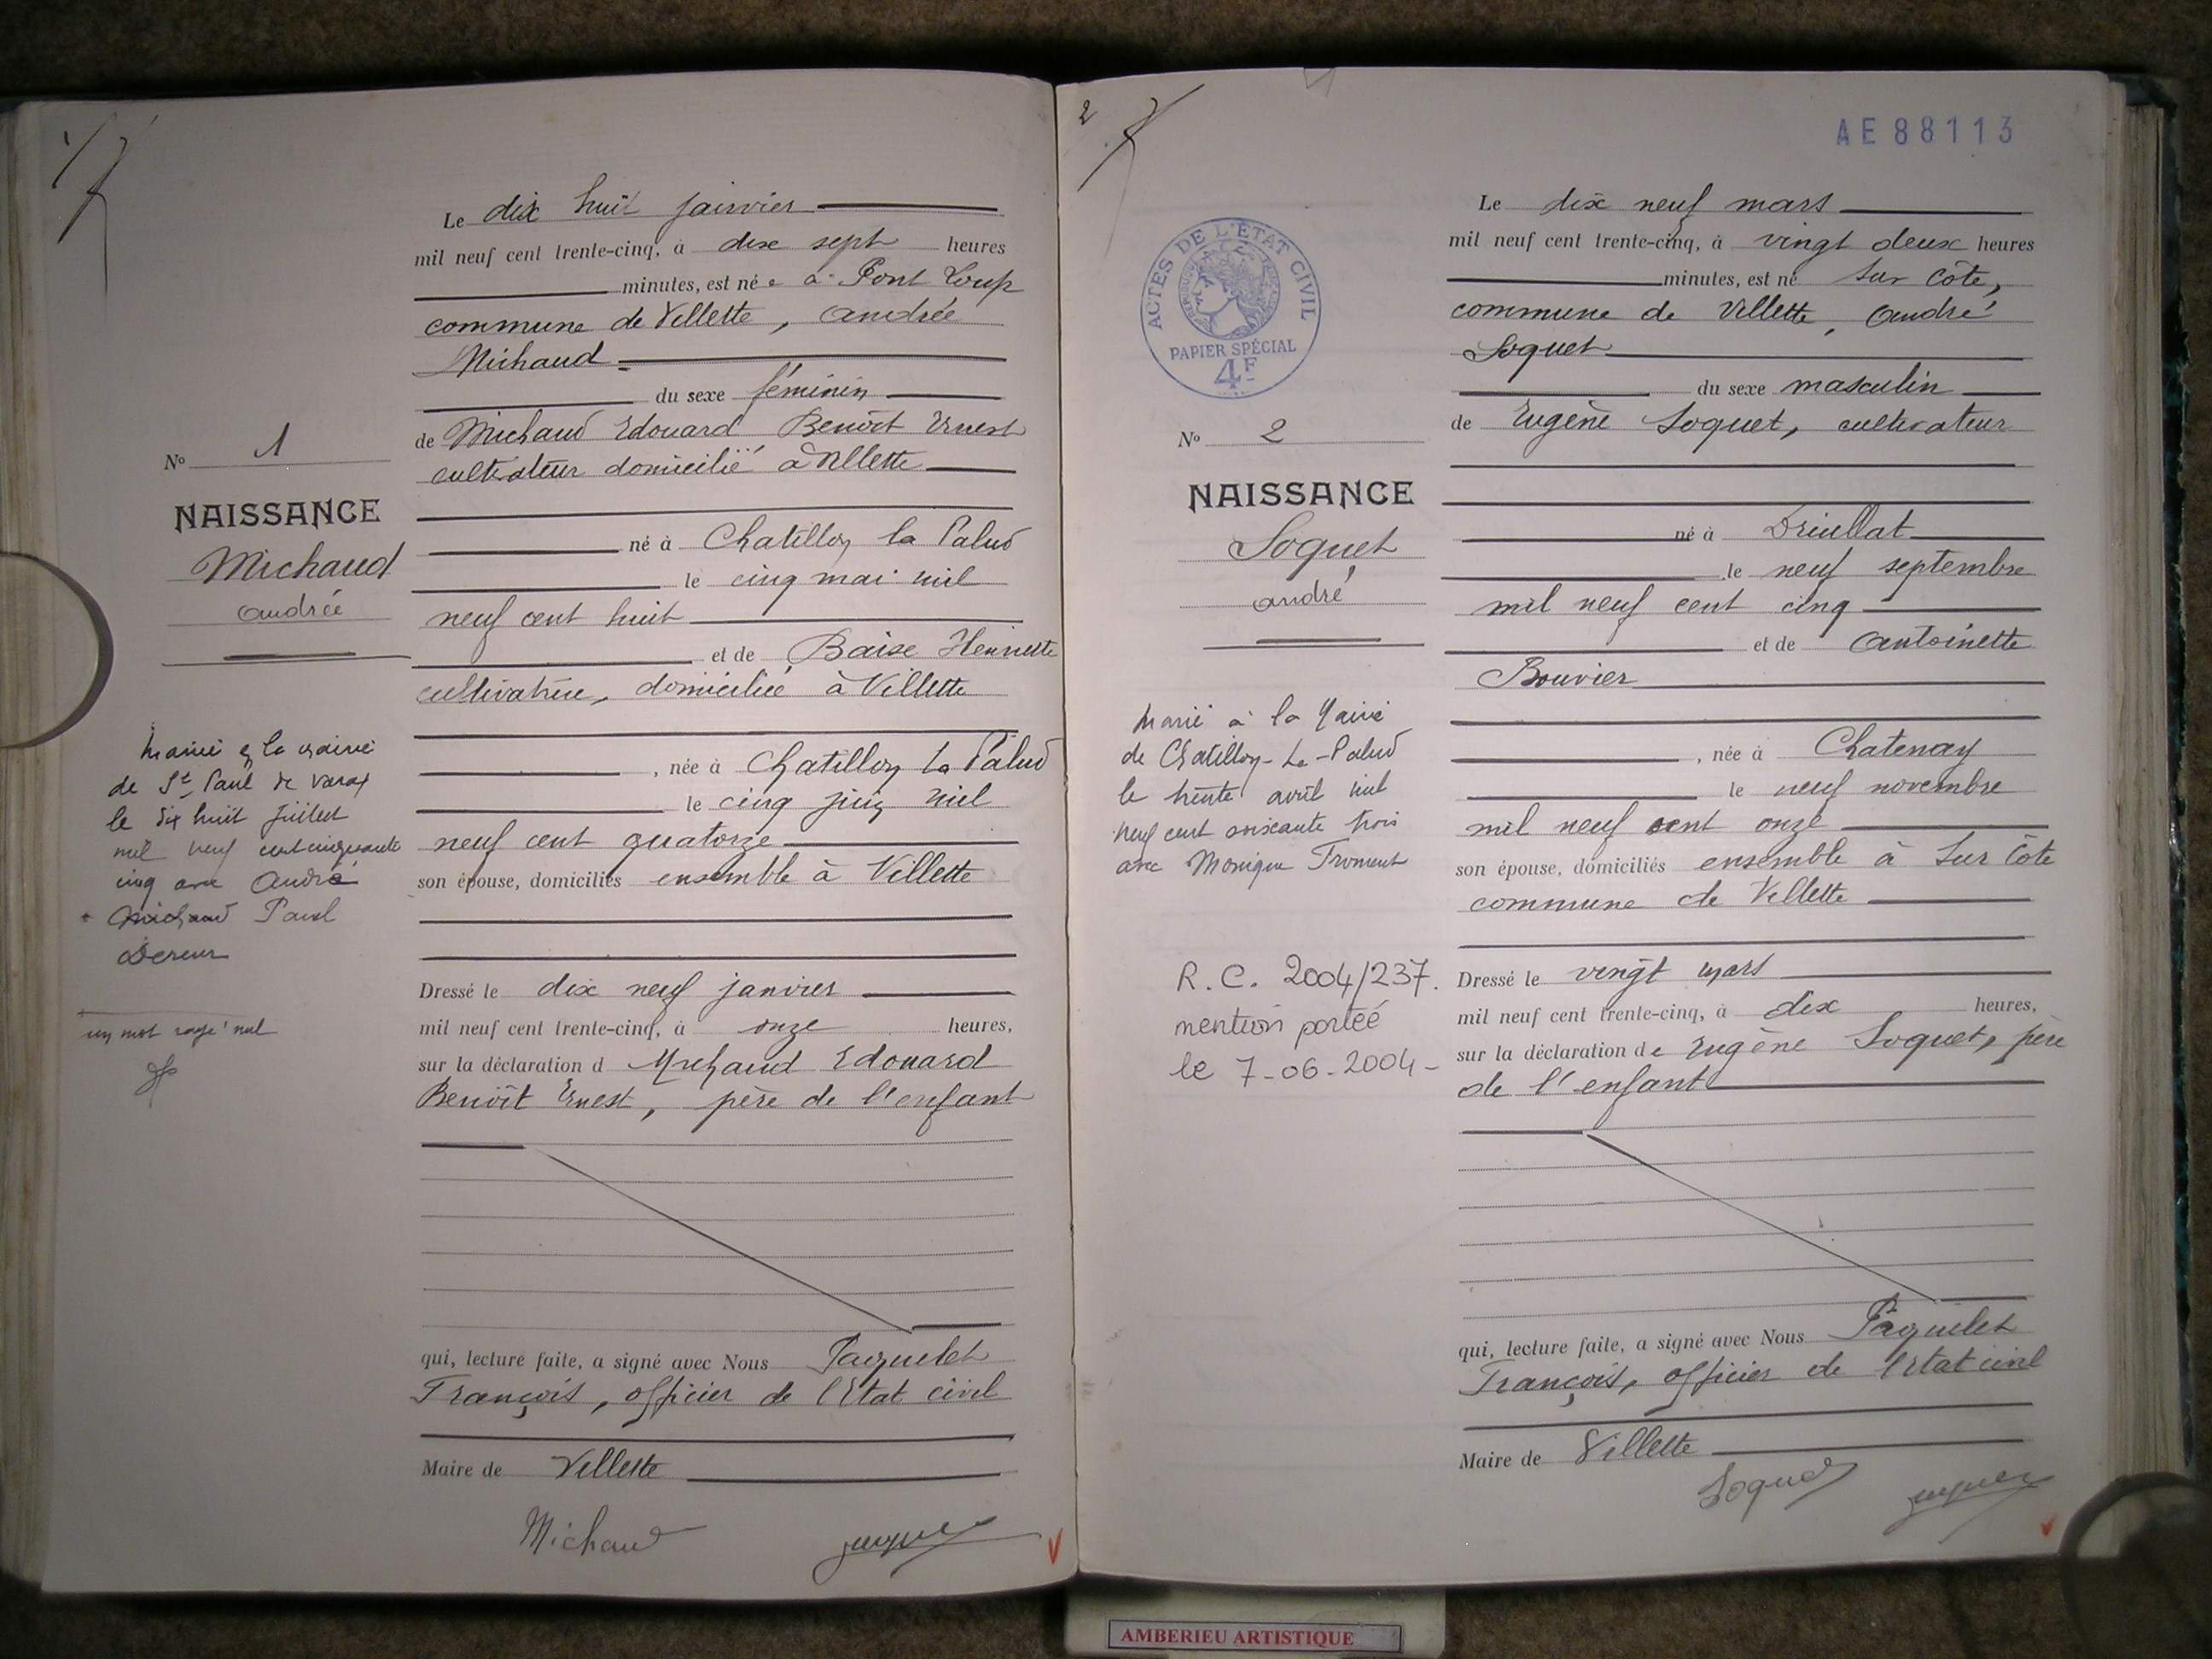 Le dix huit janvier
mil neuf cent trente-cinq, à dix sept heures
minutes, est née à Pont Loup
commune de Villette, Andrée
Michaud
du sexe féminin
de Michaud Edouard Benoît Ernest
cultivateur domicilié à Villette
né à Chatillon la Palud
le cinq mai mil
neuf cent huit
et de Baise Henriette
cultivatrice, domiciliée à Villette
, née à Chatillon la Palud
le cinq juin mil
neuf cent quatorze
son épouse, domiciliés ensemble à Villette
Dressé le dix neuf janvier
mil neuf cent trente-cinq, à onze heures,
sur la déclaration d Michaud Edouard
Benoît Ernest, père de l'enfant
qui, lecture faite, a signé avec Nous Paquelet
François, officier de l'Etat civil
Maire de Villette
Michaud
No 1
NAISSANCE
Michaud
Andrée
Marié à la mairie
de St Paul de Varax
le dix huit juillet
mil neuf cent cinquante
cinq avec André
Paul
un mot rayé nul
2
AE 88113
Le dix neuf mars
mil neuf cent trente-cinq, à vingt deux heures
minutes, est né sur Côte,
commune de Villette, André
Soquet
du sexe masculin
de Eugène Soquet, cultivateur
né à Druillat
le neuf septembre
mil neuf cent cinq
et de Antoinette
Bouvier
, née à Chatenay
le neuf novembre
mil neuf cent onze
son épouse, domiciliés ensemble à Sur Côte
commune de Villette
Dressé le vingt mars
mil neuf cent trente-cinq, à dix heures,
sur la déclaration de Eugène Soquet, père
de l'enfant
qui, lecture faite, a signé avec Nous Paquelet
François, officier de l'Etat civil
Maire de Villette
Soquet
ACTES DE L'ÉTAT CIVIL
PAPIER SPÉCIAL
4F
No 2
NAISSANCE
Soquet
André
Marié à la Mairie
de Chatillon-La-Palud
le trente avril mil
neuf cent soixante trois
avec Monique Froment
R.C. 2004/237.
mention portée
le 7-06-2004-
AMBERIEU ARTISTIQUE